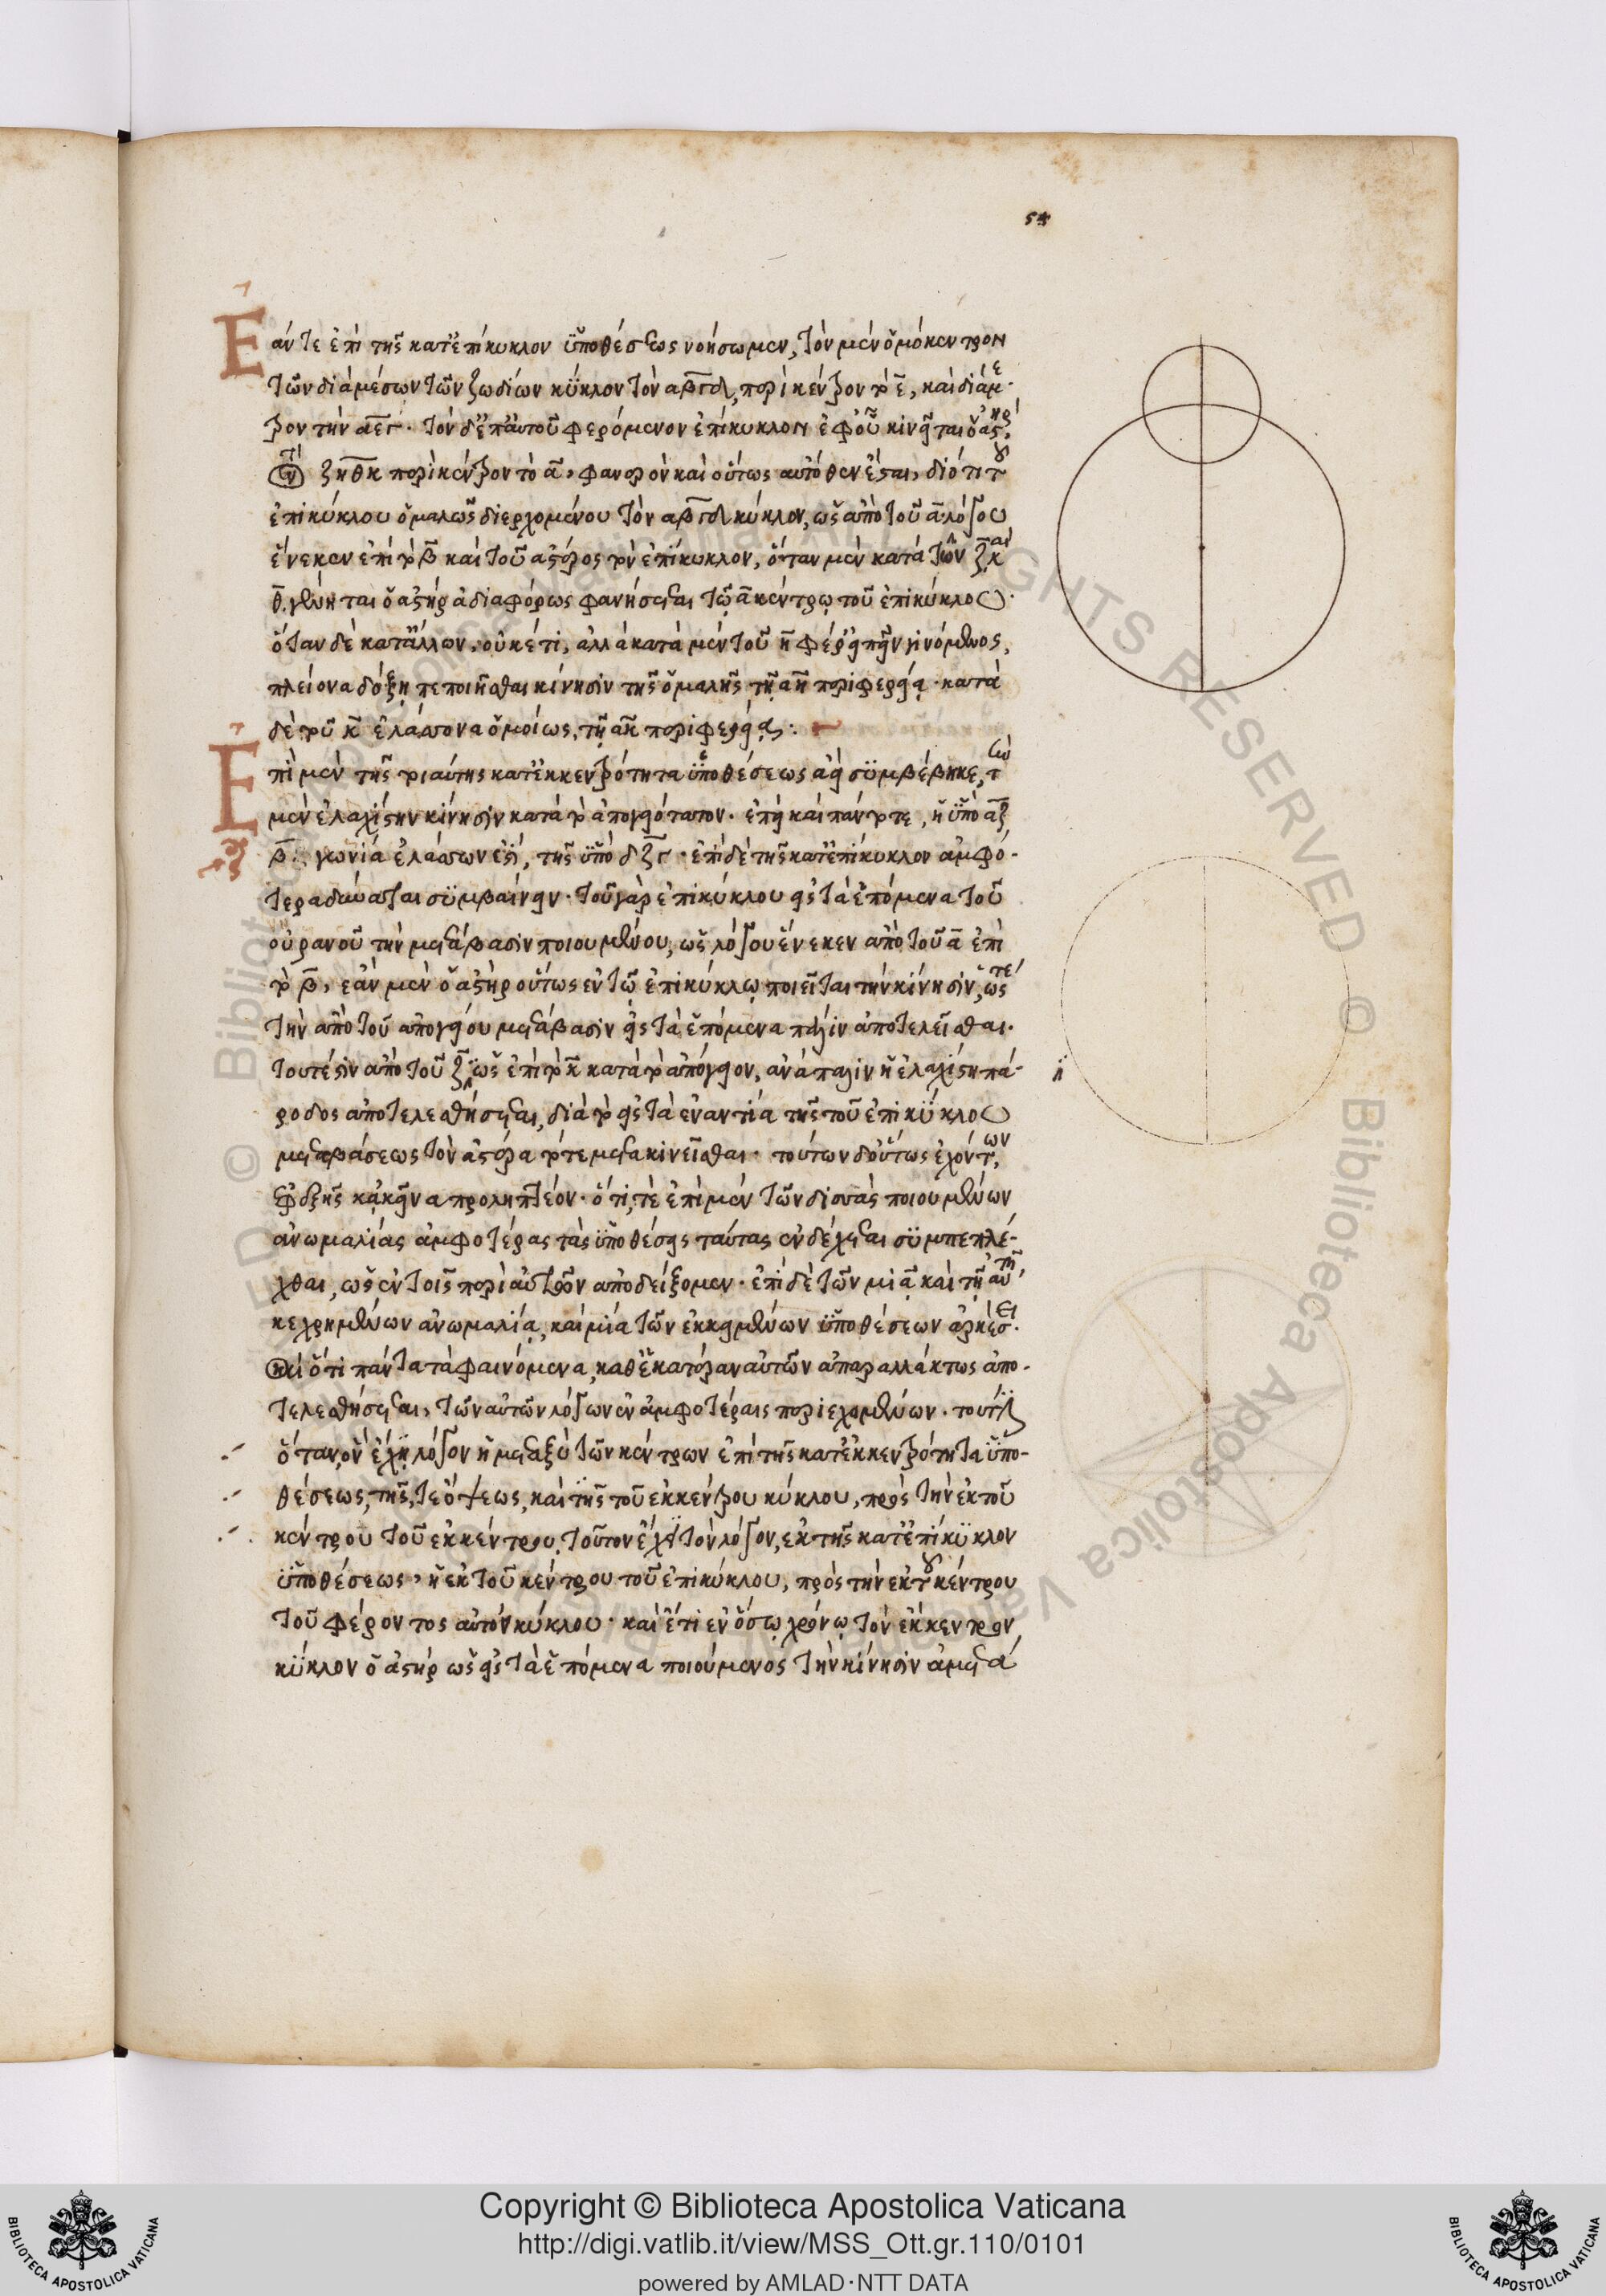 54
Ἐάν τε ἐπὶ τῆς κατ' ἐπίκυκλον ὑποθέσεως νοήσωμεν, τὸν μὲν ὁμόκεντρον
τῶν διὰ μέσων τῶν ζωδίων κύκλον τὸν αβγδ, περὶ κέντρον τὸ ε, καὶ διάμε
τρον τὴν αεγ. τὸν δὲ ἐπ' αὐτοῦ φερόμενον ἐπίκυκλον ἐφ' οὗ κινεῖται ὁ ἀστήρ,
τὸν ζηθκ περὶ κέντρον τὸ α, φανερὸν καὶ οὕτως αὐτόθεν ἔσται, διότι τοῦ
ἐπικύκλου ὁμαλῶς διερχομένου τὸν αβγδ κύκλον, ὡς ἀπὸ τοῦ α λόγου
ἕνεκεν ἐπὶ τὸ β καὶ τοῦ ἀστέρος τὸν ἐπίκυκλον, ὅταν μὲν κατὰ τῶν ζ καὶ
θ γένηται ὁ ἀστὴρ ἀδιαφόρως φανήσεται τῷ α κέντρῳ τοῦ ἐπικύκλου.
ὅταν δὲ κατ' ἄλλων, οὐκέτι, ἀλλὰ κατὰ μὲν τοῦ η φέρ' εἰπεῖν γινόμενος,
πλείονα δόξῃ πεποιῆσθαι κίνησιν τῆς ὁμαλῆς τῇ αη περιφερείᾳ. κατὰ
δὲ τοῦ κ ἐλάσσονα ὁμοίως, τῇ ακ περιφερείᾳ:
Ἐπὶ μὲν τῆς τοιαύτης κατ' ἐκκεντρότητα ὑποθέσεως ἀεὶ συμβέβηκε, τὴν
μὲν ἐλαχίστην κίνησιν κατὰ τὸ ἀπογειότατον. ἐπεὶ καὶ πάντοτε, ἡ ὑπὸ αζ
β γωνία ἐλάσσων ἐστί, τῆς ὑπὸ δζγ. ἐπὶ δὲ τῆς κατ' ἐπίκυκλον ἀμφό-
τερα δύναται συμβαίνειν. τοῦ γὰρ ἐπικύκλου εἰς τὰ ἑπόμενα τοῦ
οὐρανοῦ τὴν μετάβασιν ποιουμένου, ὡς λόγου ἕνεκεν ἀπὸ τοῦ α ἐπὶ
τὸ β, ἐὰν μὲν ὁ ἀστὴρ οὕτως ἐν τῷ ἐπικύκλῳ ποιεῖται τὴν κίνησιν, ὥστε
τὴν ἀπὸ τοῦ ἀπογείου μετάβασιν εἰς τὰ ἑπόμενα πάλιν ἀποτελεῖσθαι.
τουτέστιν ἀπὸ τοῦ ζ ὡς ἐπὶ τὸ κ κατὰ τὸ ἀπόγειον, ἀνάπαλιν ἡ ἐλαχίστη πά-
ροδος ἀποτελεσθήσεται, διὰ τὸ εἰς τὰ ἐναντία τῆς τοῦ ἐπικύκλου
μεταβάσεως τὸν ἀστέρα τότε μετακινεῖσθαι. τούτων δ' οὕτως ἐχόντων,
ἐφεξῆς κἀκεῖνα προληπτέον. ὅτι, τὲ ἐπὶ μὲν τῶν δισσὰς ποιουμένων
ἀνωμαλίας ἀμφοτέρας τὰς ὑποθέσεις ταύτας ἐνδέχεται συμπεπλέ-
χθαι, ὡς ἐν τοῖς περὶ αὐτῶν ἀποδείξομεν. ἐπὶ δὲ τῶν μιᾷ καὶ τῇ αὐτῇ
κεχρημένων ἀνωμαλίᾳ, καὶ μία τῶν ἐκκειμένων ὑποθέσεων ἀρκέσει.
καὶ ὅτι πάντα τὰ φαινόμενα, καθ' ἑκατέραν αὐτῶν ἀπαραλλάκτως ἀπο-
τελεσθήσεται, τῶν αὐτῶν λόγων ἐν ἀμφοτέραις περιεχομένων. τουτέστιν
ὅταν, ὃν ἔχῃ λόγον ἡ μεταξὺ τῶν κέντρων ἐπὶ τῆς κατ' ἐκκεντρότητα ὑπο-
θέσεως, τῆς, τε ὄψεως, καὶ τῆς τοῦ ἐκκέντρου κύκλου, πρὸς τὴν ἐκ τοῦ
κέντρου τοῦ ἐκκέντρου. τοῦτον ἔχῃ τὸν λόγον, ἐκ τῆς κατ' ἐπίκυκλον
ὑποθέσεως, ἡ ἐκ τοῦ κέντρου τοῦ ἐπικύκλου, πρὸς τὴν ἐκ τοῦ κέντρου
τοῦ φέροντος αὐτὸν κύκλου. καὶ ἔτι ἐν ὅσῳ χρόνῳ τὸν ἔκκεντρον
κύκλον ὁ ἀστὴρ ὡς εἰς τὰ ἑπόμενα ποιούμενος τὴν κίνησιν ἀμετά
Copyright © Biblioteca Apostolica Vaticana
http://digi.vatlib.it/view/MSS_Ott.gr.110/0101
powered by AMLAD·NTT DATA
BIBLIOTECA APOSTOLICA VATICANA
BIBLIOTECA APOSTOLICA VATICANA